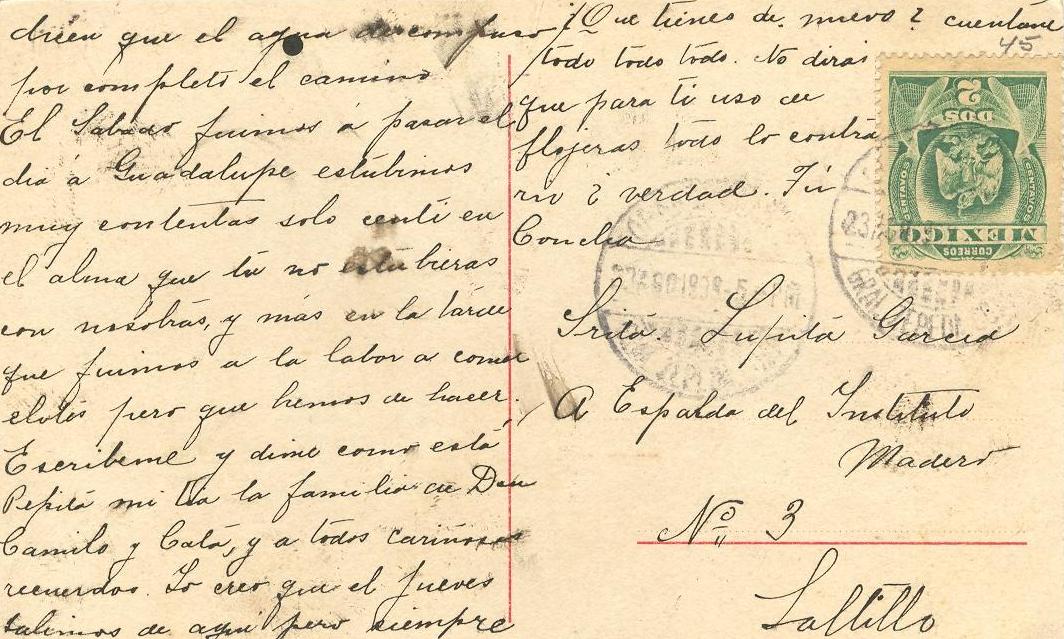 dicen que el agua descompuso
por completo el camino
El Sabado fuimos á pasar el
dia á Guadalupe estubimos
muy contentas solo centí en
el alma que tu no estubieras
con nosotras, y más en la tarde
que fuimos a la labor a comer
elotes pero que hemos de hacer.
Escribeme y dime como está
Pepita mi tia la familia de Don
Camilo y Catá, y a todos cariñosos
recuerdos. Yo creo que el jueves
salimos de aqui pero siempre
¿Que tienes de nuevo? cuentame
todo todo todo. No diras
que para ti uso de
flojeras todo lo contra
rio ¿ verdad. Tú
Concha
45
2
DOS
CENTAVOS
CENTAVOS
MEXICO
CORREOS
Srita. Lupita Garcia
A Espalda del Instituto
Madero
No 3
Saltillo